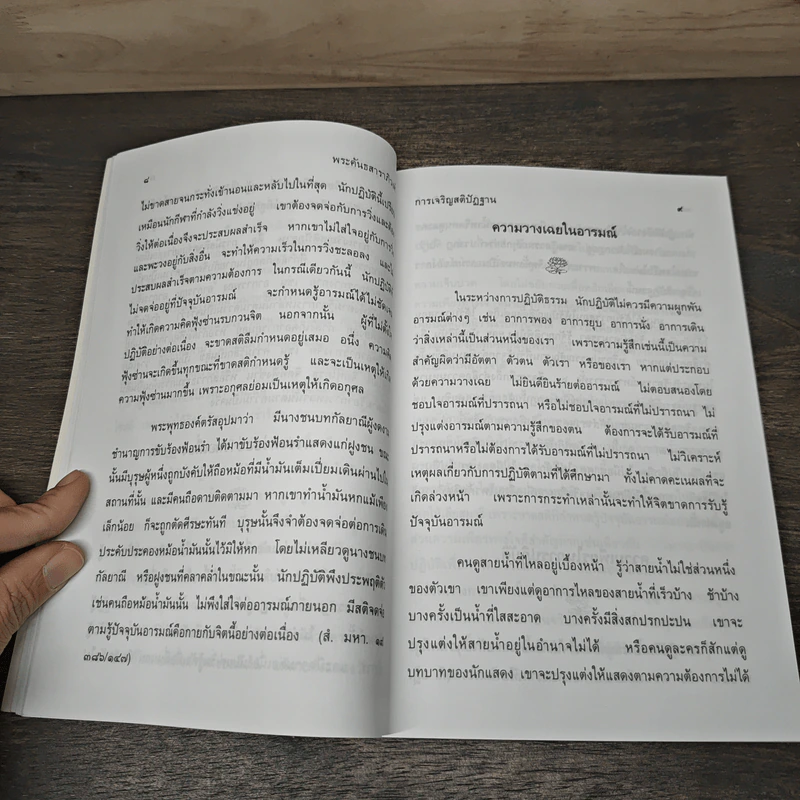 ๘
พระคันธสาราภิวงศ์
ไม่ขาดสายจนกระทั่งเข้านอนและหลับไปในที่สุด นักปฏิบัตินี้เปรียบ
เหมือนนักกีฬาที่กำลังวิ่งแข่งอยู่ เขาต้องจดจ่อกับการวิ่งและต้อง
วิ่งให้ต่อเนื่องจึงจะประสบผลสำเร็จ หากเขาไม่ใส่ใจอยู่กับการวิ่ง
และพะวงอยู่กับสิ่งอื่น จะทำให้ความเร็วในการวิ่งชะลอลง และไม่
ประสบผลสำเร็จตามความต้องการ ในกรณีเดียวกันนี้ นักปฏิบัติที่
ไม่จดจ่ออยู่ที่ปัจจุบันอารมณ์ จะกำหนดรู้อารมณ์ได้ไม่ชัดเจน
ทำให้เกิดความคิดฟุ้งซ่านรบกวนจิต นอกจากนั้น ผู้ที่ไม่ตั้งใจ
ปฏิบัติอย่างต่อเนื่อง จะขาดสติลืมกำหนดอยู่เสมอ อนึ่ง ความคิด
ฟุ้งซ่านจะเกิดขึ้นทุกขณะที่ขาดสติกำหนดรู้ และจะเป็นเหตุให้เกิด
ความฟุ้งซ่านมากขึ้น เพราะอกุศลย่อมเป็นเหตุให้เกิดอกุศล
พระพุทธองค์ตรัสอุปมาว่า มีนางชนบทกัลยาณีผู้งดงาม
ชำนาญการขับร้องฟ้อนรำ ได้มาขับร้องฟ้อนรำแสดงแก่ฝูงชน ขณะ
นั้นมีบุรุษผู้หนึ่งถูกบังคับให้ถือหม้อที่มีน้ำมันเต็มเปี่ยมเดินผ่านไปใน
สถานที่นั้น และมีคนถือดาบติดตามมา หากเขาทำน้ำมันหกแม้เพียง
เล็กน้อย ก็จะถูกตัดศีรษะทันที บุรุษนั้นจึงจำต้องจดจ่อต่อการเดิน
ประคับประคองหม้อน้ำมันนั้นไว้มิให้หก โดยไม่เหลียวดูนางชนบท
กัลยาณี หรือฝูงชนที่คลาคล่ำในขณะนั้น นักปฏิบัติพึงประพฤติตัว
เช่นคนถือหม้อน้ำมันนั้น ไม่พึงใส่ใจต่ออารมณ์ภายนอก มีสติจดจ่อ
ตามรู้ปัจจุบันอารมณ์คือกายกับจิตนี้อย่างต่อเนื่อง (สํ. มหา. ๑๙
๓๘๖/๑๔๗)
การเจริญสติปัฏฐาน
๙
ความวางเฉยในอารมณ์
ในระหว่างการปฏิบัติธรรม นักปฏิบัติไม่ควรมีความผูกพัน
อารมณ์ต่างๆ เช่น อาการพอง อาการยุบ อาการนั่ง อาการเดิน
ว่าสิ่งเหล่านี้เป็นส่วนหนึ่งของเรา เพราะความรู้สึกเช่นนี้เป็นความ
สำคัญผิดว่ามีอัตตา ตัวตน ตัวเรา หรือของเรา หากแต่ประกอบ
ด้วยความวางเฉย ไม่ยินดียินร้ายต่ออารมณ์ ไม่ตอบสนองโดย
ชอบใจอารมณ์ที่ปรารถนา หรือไม่ชอบใจอารมณ์ที่ไม่ปรารถนา ไม่
ปรุงแต่งอารมณ์ตามความรู้สึกของตน ต้องการจะได้รับอารมณ์ที่
ปรารถนาหรือไม่ต้องการได้รับอารมณ์ที่ไม่ปรารถนา ไม่วิเคราะห์
เหตุผลเกี่ยวกับการปฏิบัติตามที่ได้ศึกษามา ทั้งไม่คาดคะเนผลที่จะ
เกิดล่วงหน้า เพราะการกระทำเหล่านั้นจะทำให้จิตขาดการรับรู้
ปัจจุบันอารมณ์
คนดูสายน้ำที่ไหลอยู่เบื้องหน้า รู้ว่าสายน้ำไม่ใช่ส่วนหนึ่ง
ของตัวเขา เขาเพียงแต่ดูอาการไหลของสายน้ำที่เร็วบ้าง ช้าบ้าง
บางครั้งเป็นน้ำที่ใสสะอาด บางครั้งมีสิ่งสกปรกปะปน เขาจะ
ปรุงแต่งให้สายน้ำอยู่ในอำนาจไม่ได้ หรือคนดูละครก็สักแต่ดู
บทบาทของนักแสดง เขาจะปรุงแต่งให้แสดงตามความต้องการไม่ได้